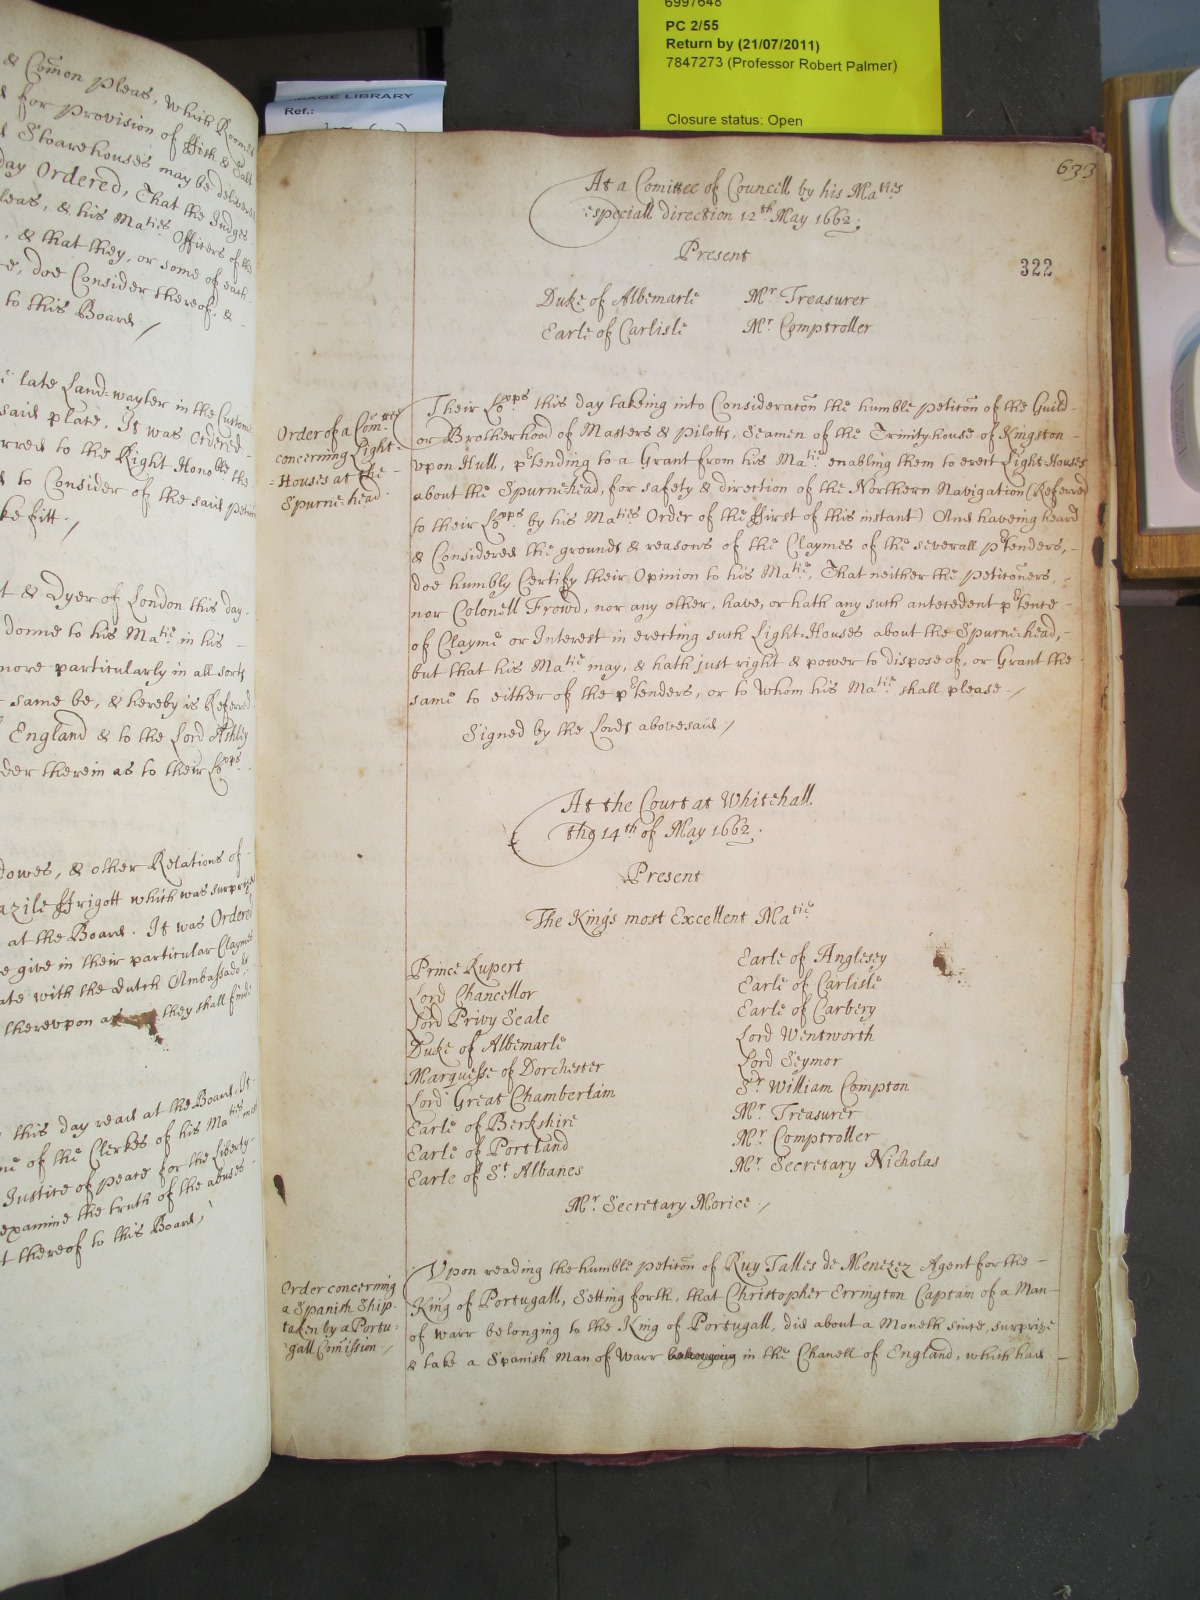 6997648
PC 2/55
Return by (21/07/2011)
7847273 (Professor Robert Palmer)
Closure status: Open
IMAGE LIBRARY
Ref.:
& Comon Pleas, which Roomes
for Provision of ffish & Salt
Stoarehouses may be delivered
day Ordered, That the Judges
leas, & his Ma^ties Officers of the
, & that they, or some of each
e, doe Consider thereof, & -
to this Board /
late Land=wayter in the Customes
said place. It was Ordered -
rred to the Right Hono^ble the
to Consider of the said petion
ke fitt /
t & Dyer of London this day -
donne to his Ma^tie in his -
more particularly in all sorts
same be, & hereby is Referred
England & to the Lord Ashley
der therein as to their Lo^pps
dowes, & other Relations of
azile ffrigott which was surprized
at the Board. It was Ordered
e give in their particular Claymes
ate with the Dutch Ambassado^rs
therevpon as they shall finde
this day read at the Board, It
ne of the Clerkes of his Ma^ties most
Justice of peace for the Liberty
examine the truth of the abuses
t thereof to this Board /
633
At a Comittee of Councell by his Ma^ties
especiall direction 12^th May 1662.
Present
322
Duke of Albemarle M^r Treasurer
Earle of Carlisle M^r Comptroller
Order of a Com^ttee
concerning Light=
=Houses at the -
Spurnehead
Their Lo^pps this day takeing into Consideraton the humble Petiton of the Guild -
or Brotherhood of Masters & Pilotts, Seamen of the Trinityhouse of Kingston -
vpon Hull, p^etending to a Grant from his Ma^tie enabling them to erect Light-Houses
about the Spurnehead, for safety & direction of the Northern Navigation (Referred
to their Lo^pps by his Ma^ties Order of the ffirst of this instant) And haveing heard
& Considered the grounds & reasons of the Claymes of the severall p^etenders, -
doe humbly Certify their Opinion to his Ma^tie, That neither the Petitoners, -
nor Colonell Frowd, nor any other, have, or hath any such antecedent p^etence -
of Clayme or Interest in erecting such Light-Houses about the Spurnehead, -
but that his Ma^tie may, & hath just right & power to dispose of, or Grant the -
same to either of the p^etenders, or to whom his Ma^tie shall please /
Signed by the Lords abovesaid /
At the Court at Whitehall
the 14^th of May 1662.
Present
The Kings most Excellent Ma^tie
Prince Rupert
Lord Chancellor
Lord Privy Seale
Duke of Albemarle
Marquesse of Dorchester
Lord Great Chamberlain
Earle of Berkshire
Earle of Portland
Earle of S^t Albanes
Earle of Anglesey
Earle of Carlisle
Earle of Carbery
Lord Wentworth
Lord Seymor
S^r William Compton
M^r Treasurer
M^r Comptroller
M^r Secretary Nicholas
M^r Secretary Morice /
Order concerning
a Spanish Ship
taken by a Portu=
gall Comission /
Vpon reading the humble Petiton of Ruy Talles de Menezez Agent for the -
King of Portugall, Setting forth, that Christopher Errington Captain of a Man
of warr belonging to the King of Portugall, did about a Moneth since, surprize
& take a Spanish Man of Warr in the Chanell of England, which had -